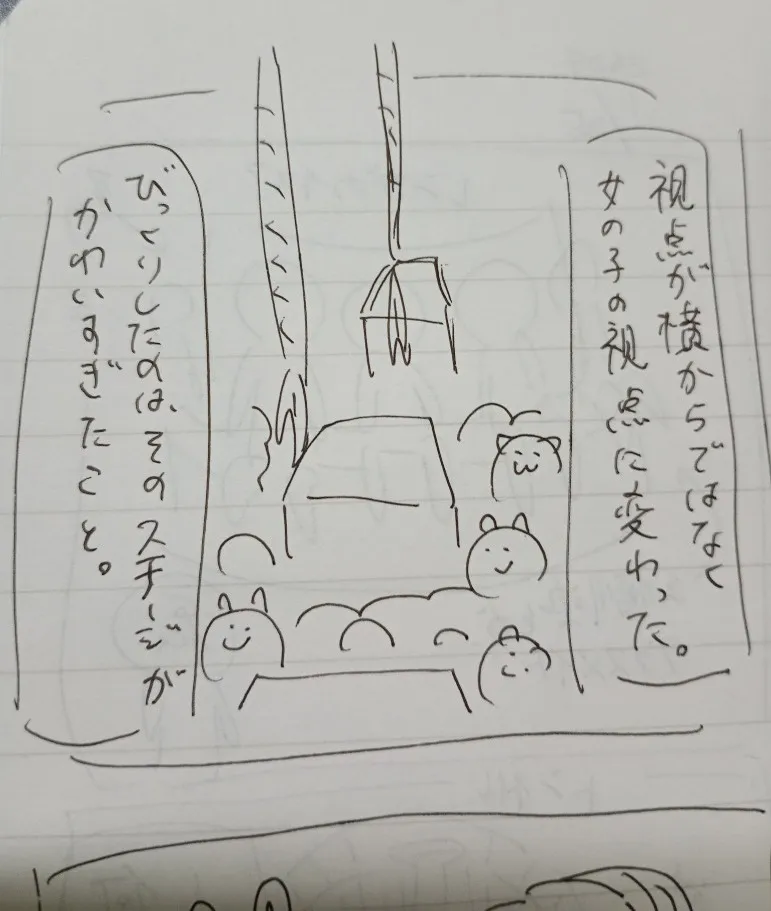 視点が横からではなく
女の子の視点に変わった。
びっくりしたのは、そのステージが
かわいすぎたこと。